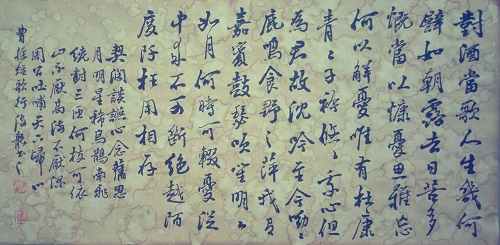 對酒當歌人生幾何
譬如朝露去日苦多
慨當以慷憂思難忘
何以解憂唯有杜康
青々子衿悠々我心但
為君故沈吟至今呦々
鹿鳴食野之苹我有
嘉賓鼓瑟吹笙明々
如月何時可輟憂從
中來不可斷絕越陌
度阡枉用相存
契闊談讌心念舊恩
月明星稀烏鵲南飛
繞樹三匝何枝可依
山不厭高海不厭深
周公吐哺天下歸心
曹操短歌行